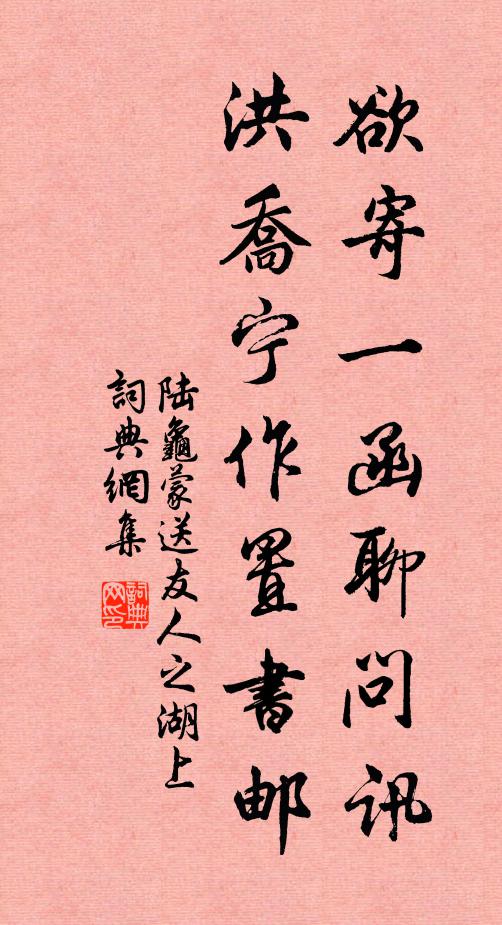 欲寄一函聊問訊
洪喬宁作置書邮
陆龜蒙送友人之湖上
詞典網集
詞典网印